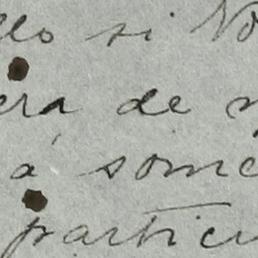 llo si No
era de n
a some
particu